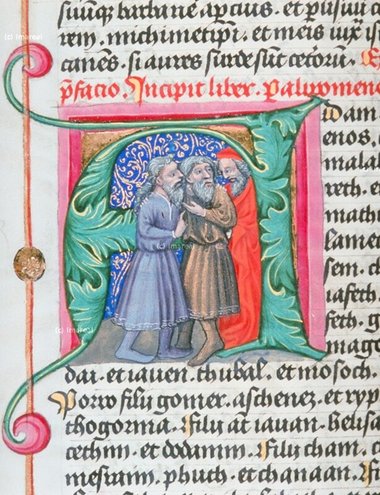 siuuq barbarie apcius, et plusiui c
rem, michimetipi, et meis iux
canens. si aures surde sunt cetorū.
pfacio. Incipit liber. Palipomeno
Adam
enos.
malal
reth. e
mach
lamec
sem. c
iafeth.
feth. g
mago
dai. et iauen. thubal. et mosoch.
Porro filij gomer. aschenez. et ryp
thogorma. Filij at iauan. helisa
cethim. et dodanim. Filij cham. c
mesraim. phuth. et chanaan. Fi
(c) Imareal
(c) Imareal
(c) Imareal